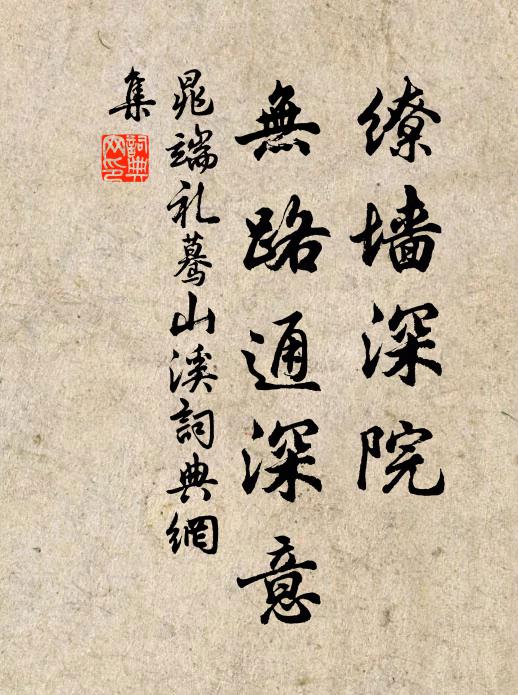 缭墙深院
無路通深意
晁端礼蓦山溪詞典網
集
詞典
网印